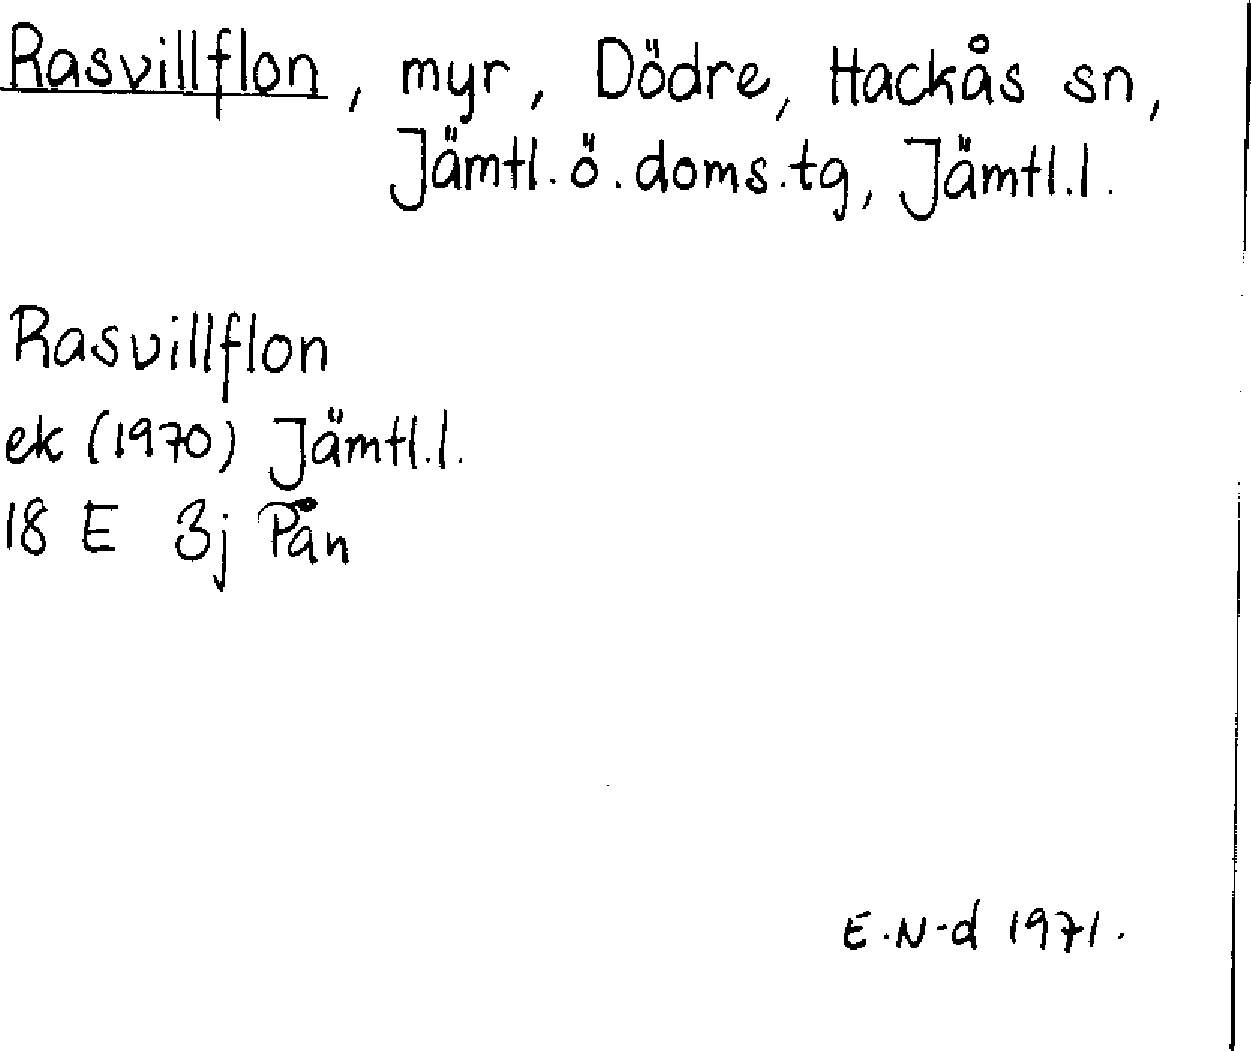 Rasvillflon, myr, Dödre, Hackås sn,
Jämtl.ö.doms.tg, Jämtl.l.
Rasvillflon
ek (1970) Jämtl.l.
18 E 3j Pån
E.N-d 1971.